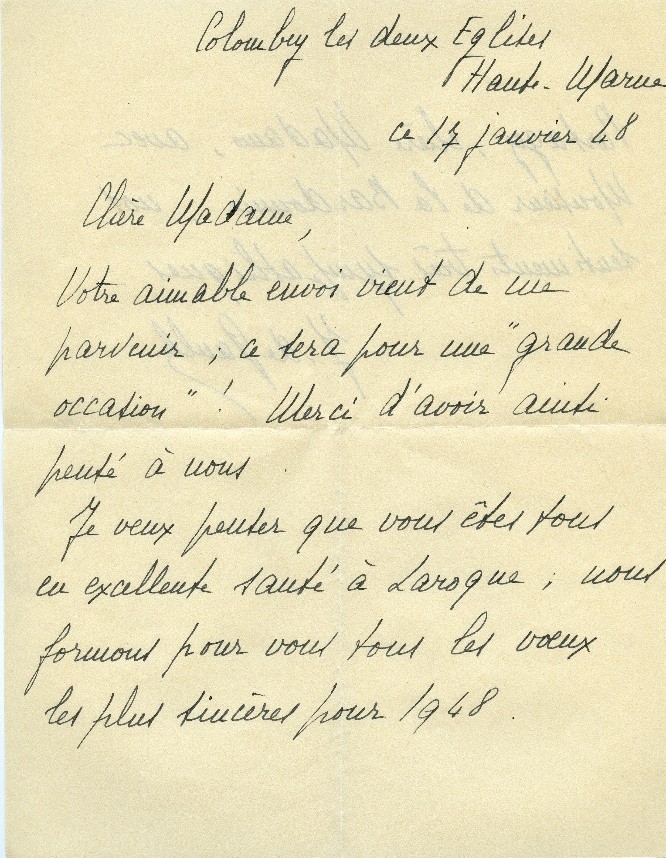 Colombey les deux Eglises
Haute-Marne
ce 17 janvier 48
Chère Madame,
Votre aimable envoi vient de me
parvenir ; ce sera pour une "grande
occasion" ! Merci d'avoir ainsi
pensé à nous.
Je veux penser que vous êtes tous
en excellente santé à Laroque ; nous
formons pour vous tous les vœux
les plus sincères pour 1948.